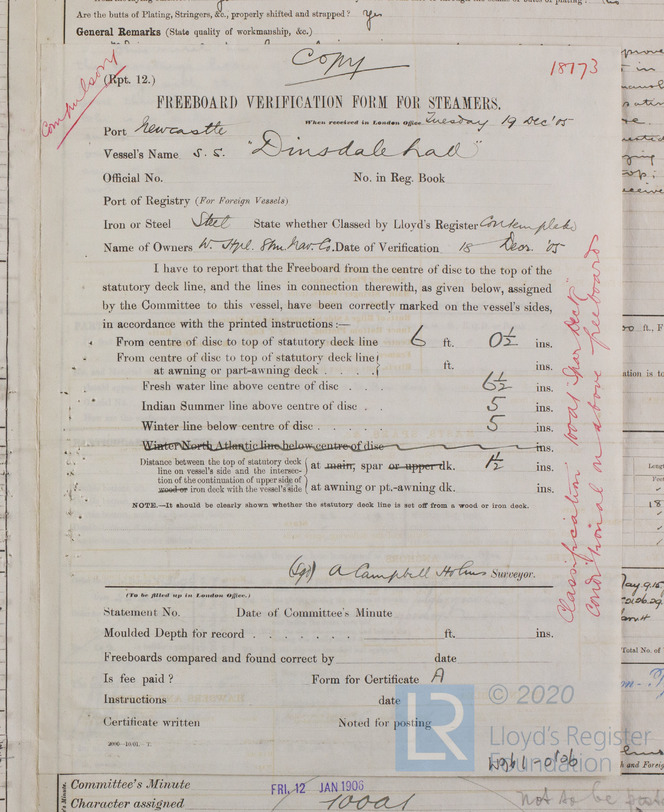 Are the butts of Plating, Stringers, &c., properly shifted and strapped? Yes
General Remarks (State quality of workmanship, &c.)
Copy
18173
Compulsory
(Rpt. 12.)
FREEBOARD VERIFICATION FORM FOR STEAMERS.
When received in London Office Tuesday 19 Dec '05
Port Newcastle
Vessel's Name S.S. "Dinsdalehall"
Official No. No. in Reg. Book
Port of Registry (For Foreign Vessels)
Iron or Steel Steel State whether Classed by Lloyd's Register Contemplated
Name of Owners W. Htpl. Stm Nav. Co. Date of Verification 18 Decr. '05
I have to report that the Freeboard from the centre of disc to the top of the
statutory deck line, and the lines in connection therewith, as given below, assigned
by the Committee to this vessel, have been correctly marked on the vessel's sides,
in accordance with the printed instructions :—
From centre of disc to top of statutory deck line 6 ft. 0½ ins.
From centre of disc to top of statutory deck line
at awning or part-awning deck . . . . ft. ins.
Fresh water line above centre of disc . . . 6½ ins.
Indian Summer line above centre of disc . . 5 ins.
Winter line below centre of disc . . . . . 5 ins.
Winter North Atlantic line below centre of disc ins.
Distance between the top of statutory deck
line on vessel's side and the intersec-
tion of the continuation of upper side of
wood or iron deck with the vessel's side
at main, spar or upper dk. 1½ ins.
at awning or pt.-awning dk. ins.
NOTE.—It should be clearly shown whether the statutory deck line is set off from a wood or iron deck.
Classification 100A1 "Spar Deck"
Conditional on above freeboards
(Sgd) A Campbell Holms Surveyor.
(To be filled up in London Office.)
Statement No. Date of Committee's Minute
Moulded Depth for record . . . . . . . ft. ins.
Freeboards compared and found correct by date
Is fee paid? Form for Certificate A
Instructions date
Certificate written Noted for posting
2000—10.01.— T.
LR
© 2020
Lloyd's Register
Foundation
W961-0106
Committee's Minute FRI. 12 JAN 1906
Character assigned 100A1